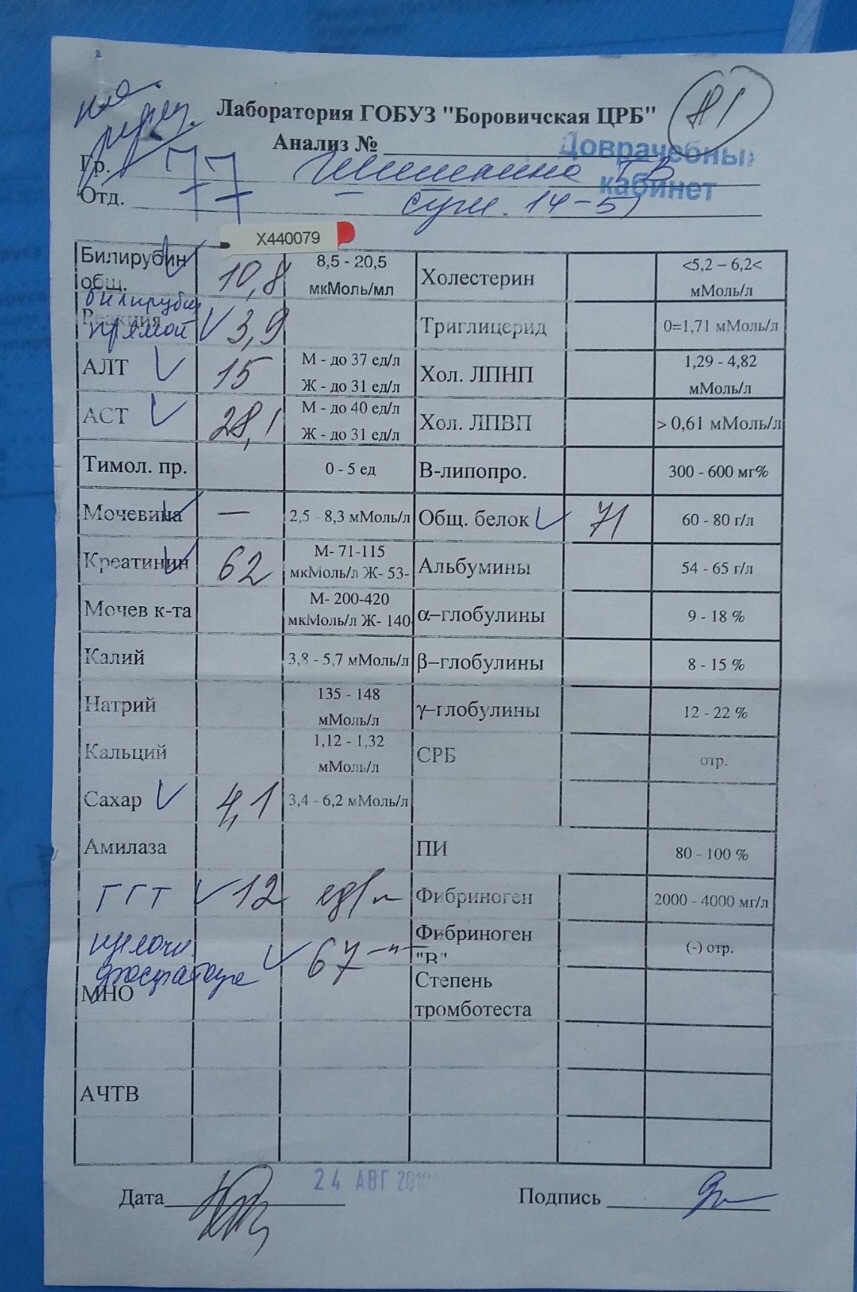 Лаборатория ГОБУЗ "Боровичская ЦРБ"
81
Анализ №
Доврачебный
кабинет
Гр. 77
Отд. 14-5
X440079
Билирубин общ. 10,8 8,5 - 20,5 мкМоль/мл Холестерин <5,2 – 6,2< мМоль/л
Реакция билирубин прямой 3,9 Триглицерид 0=1,71 мМоль/л
АЛТ 15 М - до 37 ед/л Ж - до 31 ед/л Хол. ЛПНП 1,29 - 4,82 мМоль/л
АСТ 28,1 М - до 40 ед/л Ж - до 31 ед/л Хол. ЛПВП > 0,61 мМоль/л
Тимол. пр. 0 - 5 ед В-липопро. 300 - 600 мг%
Мочевина — 2,5 - 8,3 мМоль/л Общ. белок 71 60 - 80 г/л
Креатинин 62 М- 71-115 мкМоль/л Ж- 53- Альбумины 54 - 65 г/л
Мочев к-та М- 200-420 мкМоль/л Ж- 140 α–глобулины 9 - 18 %
Калий 3,8 - 5,7 мМоль/л β–глобулины 8 - 15 %
Натрий 135 - 148 мМоль/л γ–глобулины 12 - 22 %
Кальций 1,12 - 1,32 мМоль/л СРБ отр.
Сахар 4,1 3,4 - 6,2 мМоль/л
Амилаза ПИ 80 - 100 %
ГГТ 12 ед/л Фибриноген 2000 - 4000 мг/л
щелочн. фосфатаза 67 –"– Фибриноген "В" (-) отр.
МНО Степень тромботеста
АЧТВ
Дата 24 АВГ Подпись